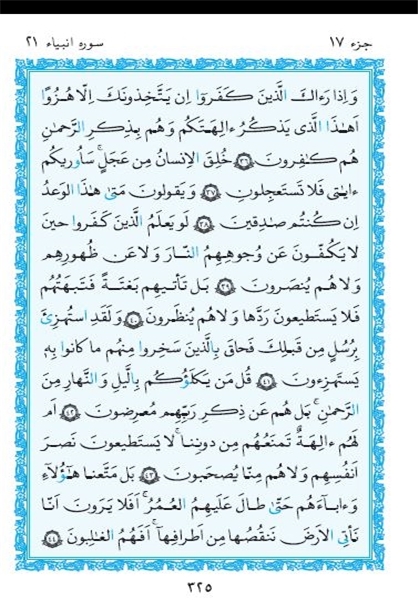 جزء ١٧
سوره انبیاء ٢١
وَ اِذا رَءاكَ الَّذينَ كَفَروا اِن يَتَّخِذونَكَ اِلّا هُزُوًا
اَهٰذَا الَّذى يَذكُرُ ءالِهَتَكُم وَ هُم بِذِكرِ الرَّحمٰنِ
هُم كٰفِرونَ ﴿٣٦﴾ خُلِقَ الاِنسانُ مِن عَجَلٍ ۚ سَاُوريكُم
ءايٰتى فَلا تَستَعجِلونِ ﴿٣٧﴾ وَ يَقولونَ مَتىٰ هٰذَا الوَعدُ
اِن كُنتُم صٰدِقينَ ﴿٣٨﴾ لَو يَعلَمُ الَّذينَ كَفَروا حينَ
لا يَكُفّونَ عَن وُجوهِهِمُ النّارَ وَ لا عَن ظُهورِهِم
وَ لا هُم يُنصَرونَ ﴿٣٩﴾ بَل تَأتيهِم بَغتَةً فَتَبهَتُهُم
فَلا يَستَطيعونَ رَدَّها وَ لا هُم يُنظَرونَ ﴿٤٠﴾ وَ لَقَدِ استُهزِئَ
بِرُسُلٍ مِن قَبلِكَ فَحاقَ بِالَّذينَ سَخِروا مِنهُم ما كانوا بِهٖ
يَستَهزِءونَ ﴿٤١﴾ قُل مَن يَكلَؤُكُم بِالَّيلِ وَ النَّهارِ مِنَ
الرَّحمٰنِ ۚ بَل هُم عَن ذِكرِ رَبِّهِم مُعرِضونَ ﴿٤٢﴾ اَم
لَهُم ءالِهَةٌ تَمنَعُهُم مِن دونِنا ۚ لا يَستَطيعونَ نَصرَ
اَنفُسِهِم وَ لا هُم مِنّا يُصحَبونَ ﴿٤٣﴾ بَل مَتَّعنا هٰؤُلاءِ
وَ ءاباءَهُم حَتّىٰ طالَ عَلَيهِمُ العُمُرُ ۗ اَفَلا يَرَونَ اَنّا
نَأتِى الاَرضَ نَنقُصُها مِن اَطرافِها ۚ اَفَهُمُ الغٰلِبونَ ﴿٤٤﴾
٣٢٥